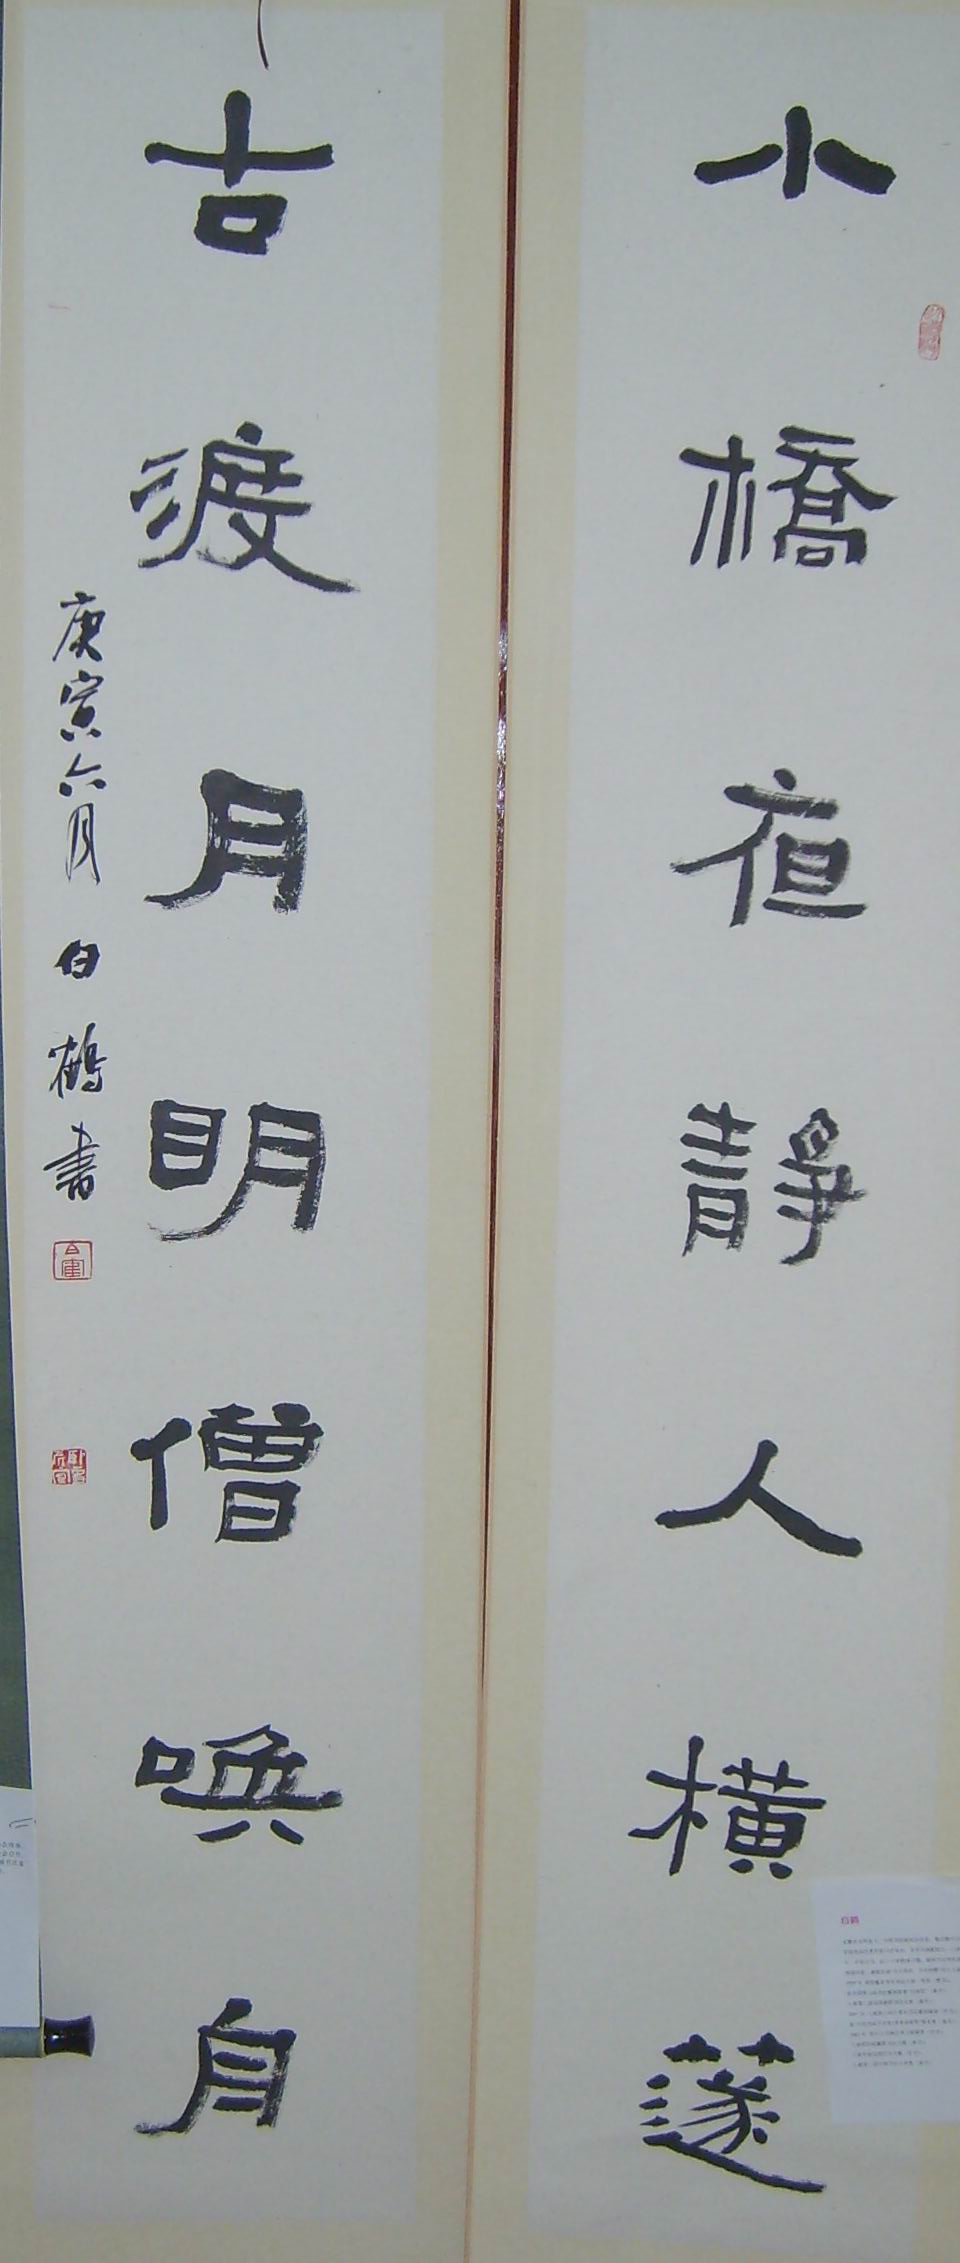 小橋夜靜人橫蓬
古渡月明僧喚自
庚寅六月 白鶴書
白鶴